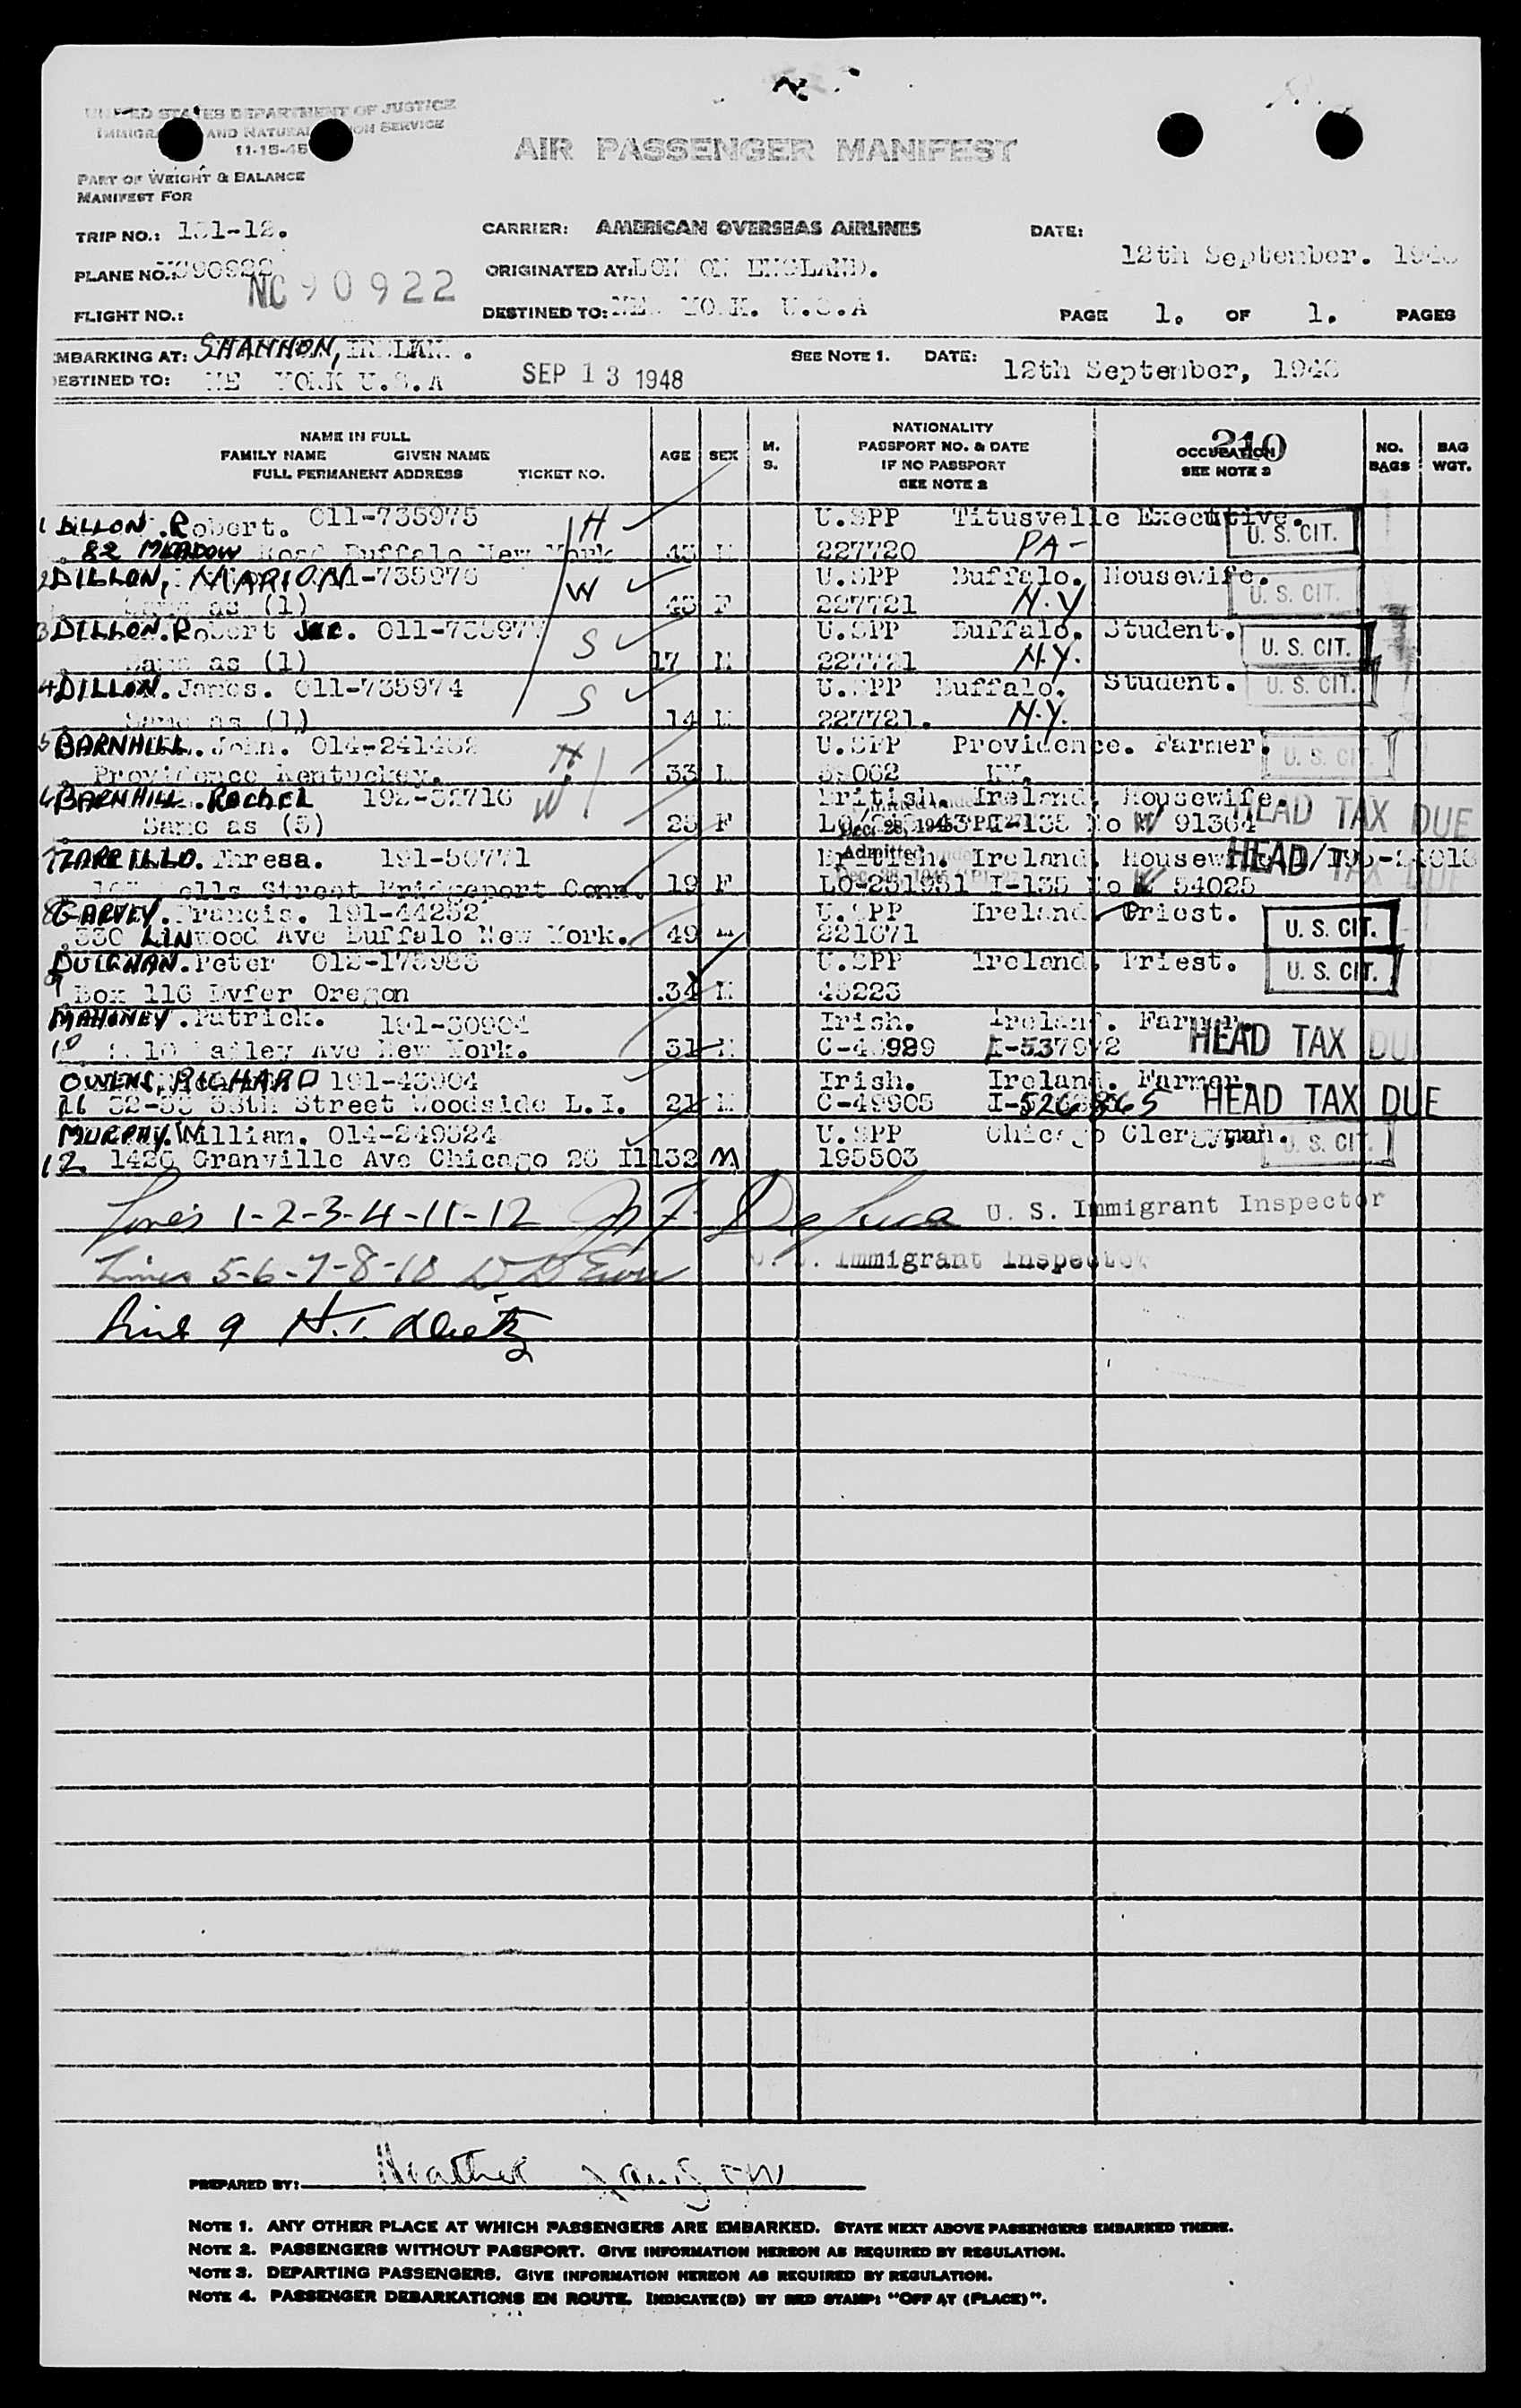 UNITED STATES DEPARTMENT OF JUSTICE
IMMIGRATION AND NATURALIZATION SERVICE
11-15-45
AIR PASSENGER MANIFEST
PART OF WEIGHT & BALANCE
MANIFEST FOR
TRIP NO.: 131-12. CARRIER: AMERICAN OVERSEAS AIRLINES DATE: 12th September. 1948
PLANE NO. NC90922 NC90922 ORIGINATED AT: LONDON ENGLAND.
FLIGHT NO.: DESTINED TO: NEW YORK. U.S.A PAGE 1. OF 1. PAGES
EMBARKING AT: SHANNON, IRELAND. SEE NOTE 1. DATE: 12th September, 1948
DESTINED TO: NEW YORK U.S.A SEP 13 1948
NAME IN FULL
FAMILY NAME GIVEN NAME
FULL PERMANENT ADDRESS TICKET NO. AGE SEX M. S. NATIONALITY PASSPORT NO. & DATE IF NO PASSPORT SEE NOTE 2 OCCUPATION SEE NOTE 3 210 NO. BAGS BAG WGT.
1 DILLON. Robert. 011-735975 H U.SPP Titusvelle Executive. U. S. CIT.
82 MEADOW Road Buffalo New York M 227720 PA-
2 DILLON, MARION 011-735976 W U.SPP Buffalo. Housewife. U. S. CIT.
Same as (1) F 227721 N.Y
3 DILLON. Robert 011-735977 S U.SPP Buffalo. Student. U. S. CIT.
Same as (1) 17 M 227721 N.Y.
4 DILLON. James. 011-735974 S U.SPP Buffalo. Student. U. S. CIT.
Same as (1) 14 M 227721. N.Y.
5 BARNHILL. John. 014-241452 H U.SPP Providence. Farmer. U. S. CIT.
Providence Kentuckey. 33 M KY.
6 BARNHILL. RACHEL 192-32716 W British. Ireland. Housewife. HEAD TAX DUE
Same as (5) 25 F I-135 No 91364
7 ZARRILLO. Theresa. 191-50771 Admitted British. Ireland. Housewife HEAD TAX DUE
Wells Street Bridgeport Conn. 19 F LO-231951 I-135 No 54025
8 GARVEY. Francis. 191-44252 U.SPP Ireland Priest. U. S. CIT.
330 LINWOOD Ave Buffalo New York. 49 M 221671
DUIGNAN. Peter 012-175983 U.SPP Ireland. Priest. U. S. CIT.
9 Box 116 Dvfer Oregon .34 M 45223
MAHONEY. Patrick. 191-30904 Irish. Ireland. Farmer. HEAD TAX DUE
10 Bailey Ave New York. 31 M I-537972
OWENS, RICHARD 191-43904 Irish. Ireland. Farmer.
11 33th Street Woodside L.I. 21 M C-49905 I-526865 HEAD TAX DUE
MURPHY. William. 014-249524 U.SPP Chicago Clergyman. U. S. CIT.
12. 1426 Granville Ave Chicago 26 Ill 32 M 195503
Lines 1-2-3-4-11-12 DeLuca U. S. Immigrant Inspector
Lines 5-6-7-8-10 U. S. Immigrant Inspector
Line 9 H.T.
PREPARED BY: Heather
NOTE 1. ANY OTHER PLACE AT WHICH PASSENGERS ARE EMBARKED. STATE NEXT ABOVE PASSENGERS EMBARKED THERE.
NOTE 2. PASSENGERS WITHOUT PASSPORT. GIVE INFORMATION HEREON AS REQUIRED BY REGULATION.
NOTE 3. DEPARTING PASSENGERS. GIVE INFORMATION HEREON AS REQUIRED BY REGULATION.
NOTE 4. PASSENGER DEBARKATIONS EN ROUTE. INDICATE(D) BY RED STAMP: "OFF AT (PLACE)".